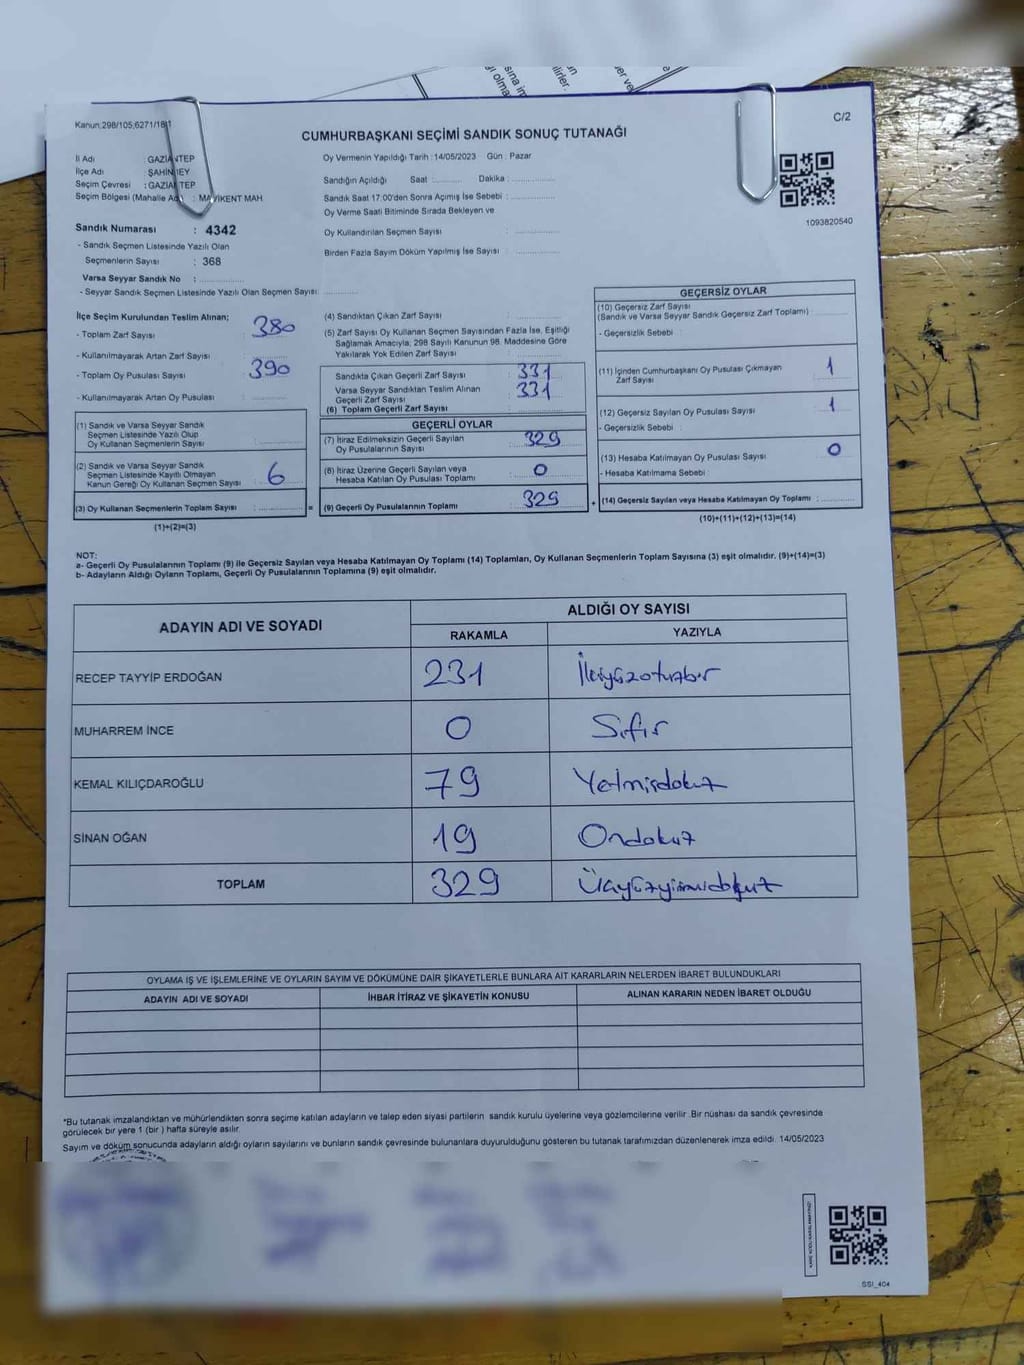 Kanun:298/105;6271/18/1
C/2
CUMHURBAŞKANI SEÇİMİ SANDIK SONUÇ TUTANAĞI
İl Adı : GAZİANTEP
İlçe Adı : ŞAHİNBEY
Seçim Çevresi : GAZİANTEP
Seçim Bölgesi (Mahalle Adı) : MAVİKENT MAH.
Oy Vermenin Yapıldığı Tarih : 14/05/2023 Gün : Pazar
Sandığın Açıldığı Saat : Dakika :
Sandık Saat 17:00'den Sonra Açımış İse Sebebi :
Oy Verme Saati Bitiminde Sırada Bekleyen ve
Oy Kullandırılan Seçmen Sayısı :
Birden Fazla Sayım Döküm Yapılmış İse Sayısı :
1093820540
Sandık Numarası : 4342
- Sandık Seçmen Listesinde Yazılı Olan
Seçmenlerin Sayısı : 368
Varsa Seyyar Sandık No :
- Seyyar Sandık Seçmen Listesinde Yazılı Olan Seçmen Sayısı:
İlçe Seçim Kurulundan Teslim Alınan;
- Toplam Zarf Sayısı 380
- Kullanılmayarak Artan Zarf Sayısı
- Toplam Oy Pusulası Sayısı 390
- Kullanılmayarak Artan Oy Pusulası :
(1) Sandık ve Varsa Seyyar Sandık
Seçmen Listesinde Yazılı Olup
Oy Kullanan Seçmenlerin Sayısı :
(2) Sandık ve Varsa Seyyar Sandık
Seçmen Listesinde Kayıtlı Olmayan
Kanun Gereği Oy Kullanan Seçmen Sayısı : 6
(3) Oy Kullanan Seçmenlerin Toplam Sayısı : =
(1)+(2)=(3)
(4) Sandıktan Çıkan Zarf Sayısı :
(5) Zarf Sayısı Oy Kullanan Seçmen Sayısından Fazla İse, Eşitliği
Sağlamak Amacıyla; 298 Sayılı Kanunun 98. Maddesine Göre
Yakılarak Yok Edilen Zarf Sayısı :
Sandıkta Çıkan Geçerli Zarf Sayısı : 331
Varsa Seyyar Sandıktan Teslim Alınan
Geçerli Zarf Sayısı : 331
(6) Toplam Geçerli Zarf Sayısı :
GEÇERLİ OYLAR
(7) İtiraz Edilmeksizin Geçerli Sayılan
Oy Pusulalarının Sayısı : 329
(8) İtiraz Üzerine Geçerli Sayılan veya
Hesaba Katılan Oy Pusulası Toplamı : 0
(9) Geçerli Oy Pusulalarının Toplamı : 329 +
GEÇERSİZ OYLAR
(10) Geçersiz Zarf Sayısı
(Sandık ve Varsa Seyyar Sandık Geçersiz Zarf Toplamı) :
- Geçersizlik Sebebi :
(11) İçinden Cumhurbaşkanı Oy Pusulası Çıkmayan
Zarf Sayısı : 1
(12) Geçersiz Sayılan Oy Pusulası Sayısı : 1
- Geçersizlik Sebebi :
(13) Hesaba Katılmayan Oy Pusulası Sayısı : 0
- Hesaba Katılmama Sebebi :
(14) Geçersiz Sayılan veya Hesaba Katılmayan Oy Toplamı :
(10)+(11)+(12)+(13)=(14)
NOT:
a- Geçerli Oy Pusulalarının Toplamı (9) ile Geçersiz Sayılan veya Hesaba Katılmayan Oy Toplamı (14) Toplamları, Oy Kullanan Seçmenlerin Toplam Sayısına (3) eşit olmalıdır. (9)+(14)=(3)
b- Adayların Aldığı Oyların Toplamı, Geçerli Oy Pusulalarının Toplamına (9) eşit olmalıdır.
ADAYIN ADI VE SOYADI
ALDIĞI OY SAYISI
RAKAMLA YAZIYLA
RECEP TAYYİP ERDOĞAN 231 İkiyüzotuzbir
MUHARREM İNCE 0 Sıfır
KEMAL KILIÇDAROĞLU 79 Yetmişdokuz
SİNAN OĞAN 19 Ondokuz
TOPLAM 329 Üçyüzyirmidokuz
OYLAMA İŞ VE İŞLEMLERİNE VE OYLARIN SAYIM VE DÖKÜMÜNE DAİR ŞİKAYETLERLE BUNLARA AİT KARARLARIN NELERDEN İBARET BULUNDUKLARI
ADAYIN ADI VE SOYADI İHBAR İTİRAZ VE ŞİKAYETİN KONUSU ALINAN KARARIN NEDEN İBARET OLDUĞU
*Bu tutanak imzalandıktan ve mühürlendikten sonra seçime katılan adayların ve talep eden siyasi partilerin sandık kurulu üyelerine veya gözlemcilerine verilir .Bir nüshası da sandık çevresinde
görülecek bir yere 1 (bir ) hafta süreyle asılır.
Sayım ve döküm sonucunda adayların aldığı oyların sayılarını ve bunların sandık çevresinde bulunanlara duyurulduğunu gösteren bu tutanak tarafımızdan düzenlenerek imza edildi. 14/05/2023
SSI_404